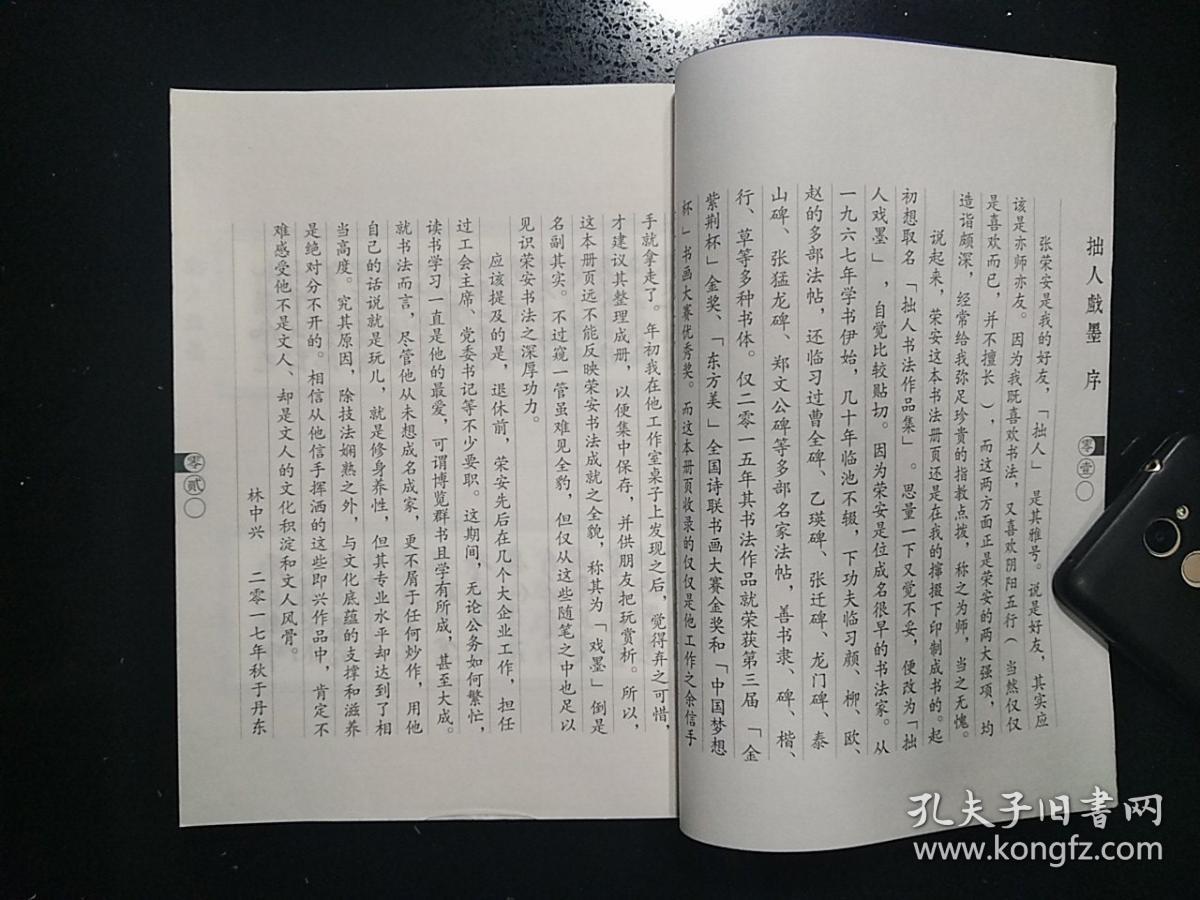 拙人戲墨 序
张荣安是我的好友，「拙人」是其雅号。说是好友，其实应
该是亦师亦友。因为我既喜欢书法，又喜欢阴阳五行（当然仅仅
是喜欢而已，并不擅长），而这两方面正是荣安的两大强项，均
造诣颇深，经常给我弥足珍贵的指教点拨，称之为师，当之无愧。
说起来，荣安这本书法册页还是在我的撺掇下印制成书的。起
初想取名「拙人书法作品集」。思量一下又觉不妥，便改为「拙
人戏墨」，自觉比较贴切。因为荣安是位成名很早的书法家。从
一九六七年学书伊始，几十年临池不辍，下功夫临习颜、柳、欧、
赵的多部法帖，还临习过曹全碑、乙瑛碑、张迁碑、龙门碑、泰
山碑、张猛龙碑、郑文公碑等多部名家法帖，善书隶、碑、楷、
行、草等多种书体。仅二零一五年其书法作品就荣获第三届「金
紫荆杯」金奖、「东方美」全国诗联书画大赛金奖和「中国梦想
杯」书画大赛优秀奖。而这本册页收录的仅仅是他工作之余信手
零壹
手就拿走了。年初我在他工作室桌子上发现之后，觉得弃之可惜，
才建议其整理成册，以便集中保存，并供朋友把玩赏析。所以，
这本册页远不能反映荣安书法成就之全貌，称其为「戏墨」倒是
名副其实。不过窥一管虽难见全豹，但仅从这些随笔之中也足以
见识荣安书法之深厚功力。
应该提及的是，退休前，荣安先后在几个大企业工作，担任
过工会主席、党委书记等不少要职。这期间，无论公务如何繁忙，
读书学习一直是他的最爱，可谓博览群书且学有所成，甚至大成。
就书法而言，尽管他从未想成名成家，更不屑于任何炒作，用他
自己的话说就是玩儿，就是修身养性，但其专业水平却达到了相
当高度。究其原因，除技法娴熟之外，与文化底蕴的支撑和滋养
是绝对分不开的。相信从他信手挥洒的这些即兴作品中，肯定不
难感受他不是文人、却是文人的文化积淀和文人风骨。
林中兴 二零一七年秋于丹东
零贰
孔夫子旧书网
www.kongfz.com